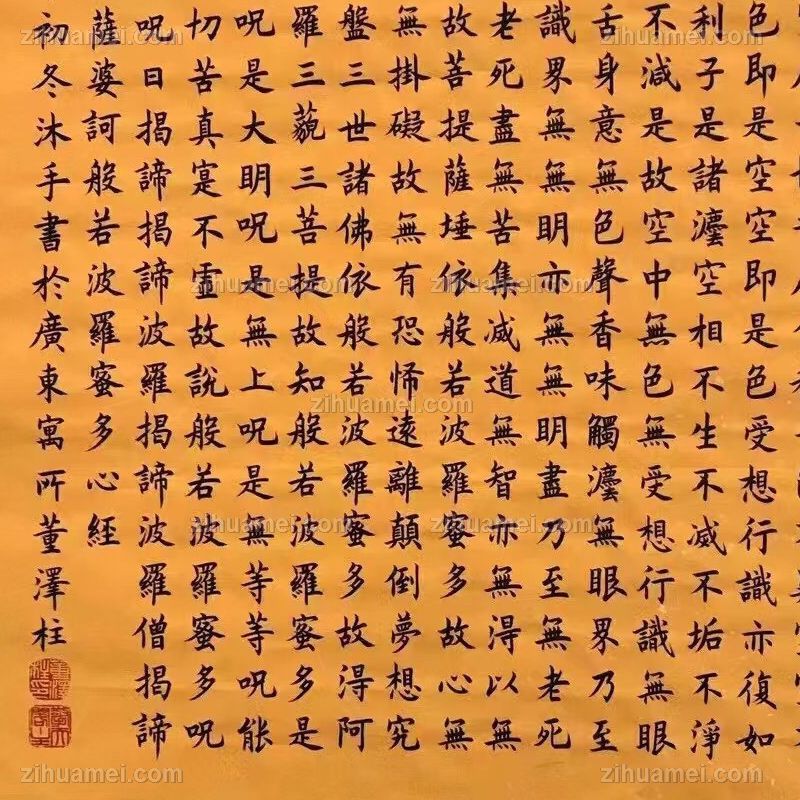 色即是空空即是色受想行識亦復如
利子是諸灋空相不生不滅不垢不淨
不減是故空中無色無受想行識無眼
舌身意無色聲香味觸灋無眼界乃至
識界無無眀亦無無眀盡乃至無老死
老死盡無苦集滅道無智亦無淂以無
故菩提薩埵依般若波羅蜜多故心無
無掛礙故無有恐怖遠離顛倒夢想究
盤三世諸佛依般若波羅蜜多故淂阿
羅三藐三菩提故知般若波羅蜜多是
呪是大眀呪是無上呪是無等等呪能
切苦真寔不虛故說般若波羅蜜多呪
呪曰揭諦揭諦波羅揭諦波羅僧揭諦
薩婆訶般若波羅蜜多心経
初冬沐手書於廣東寓所董澤柱
zihuamei.com